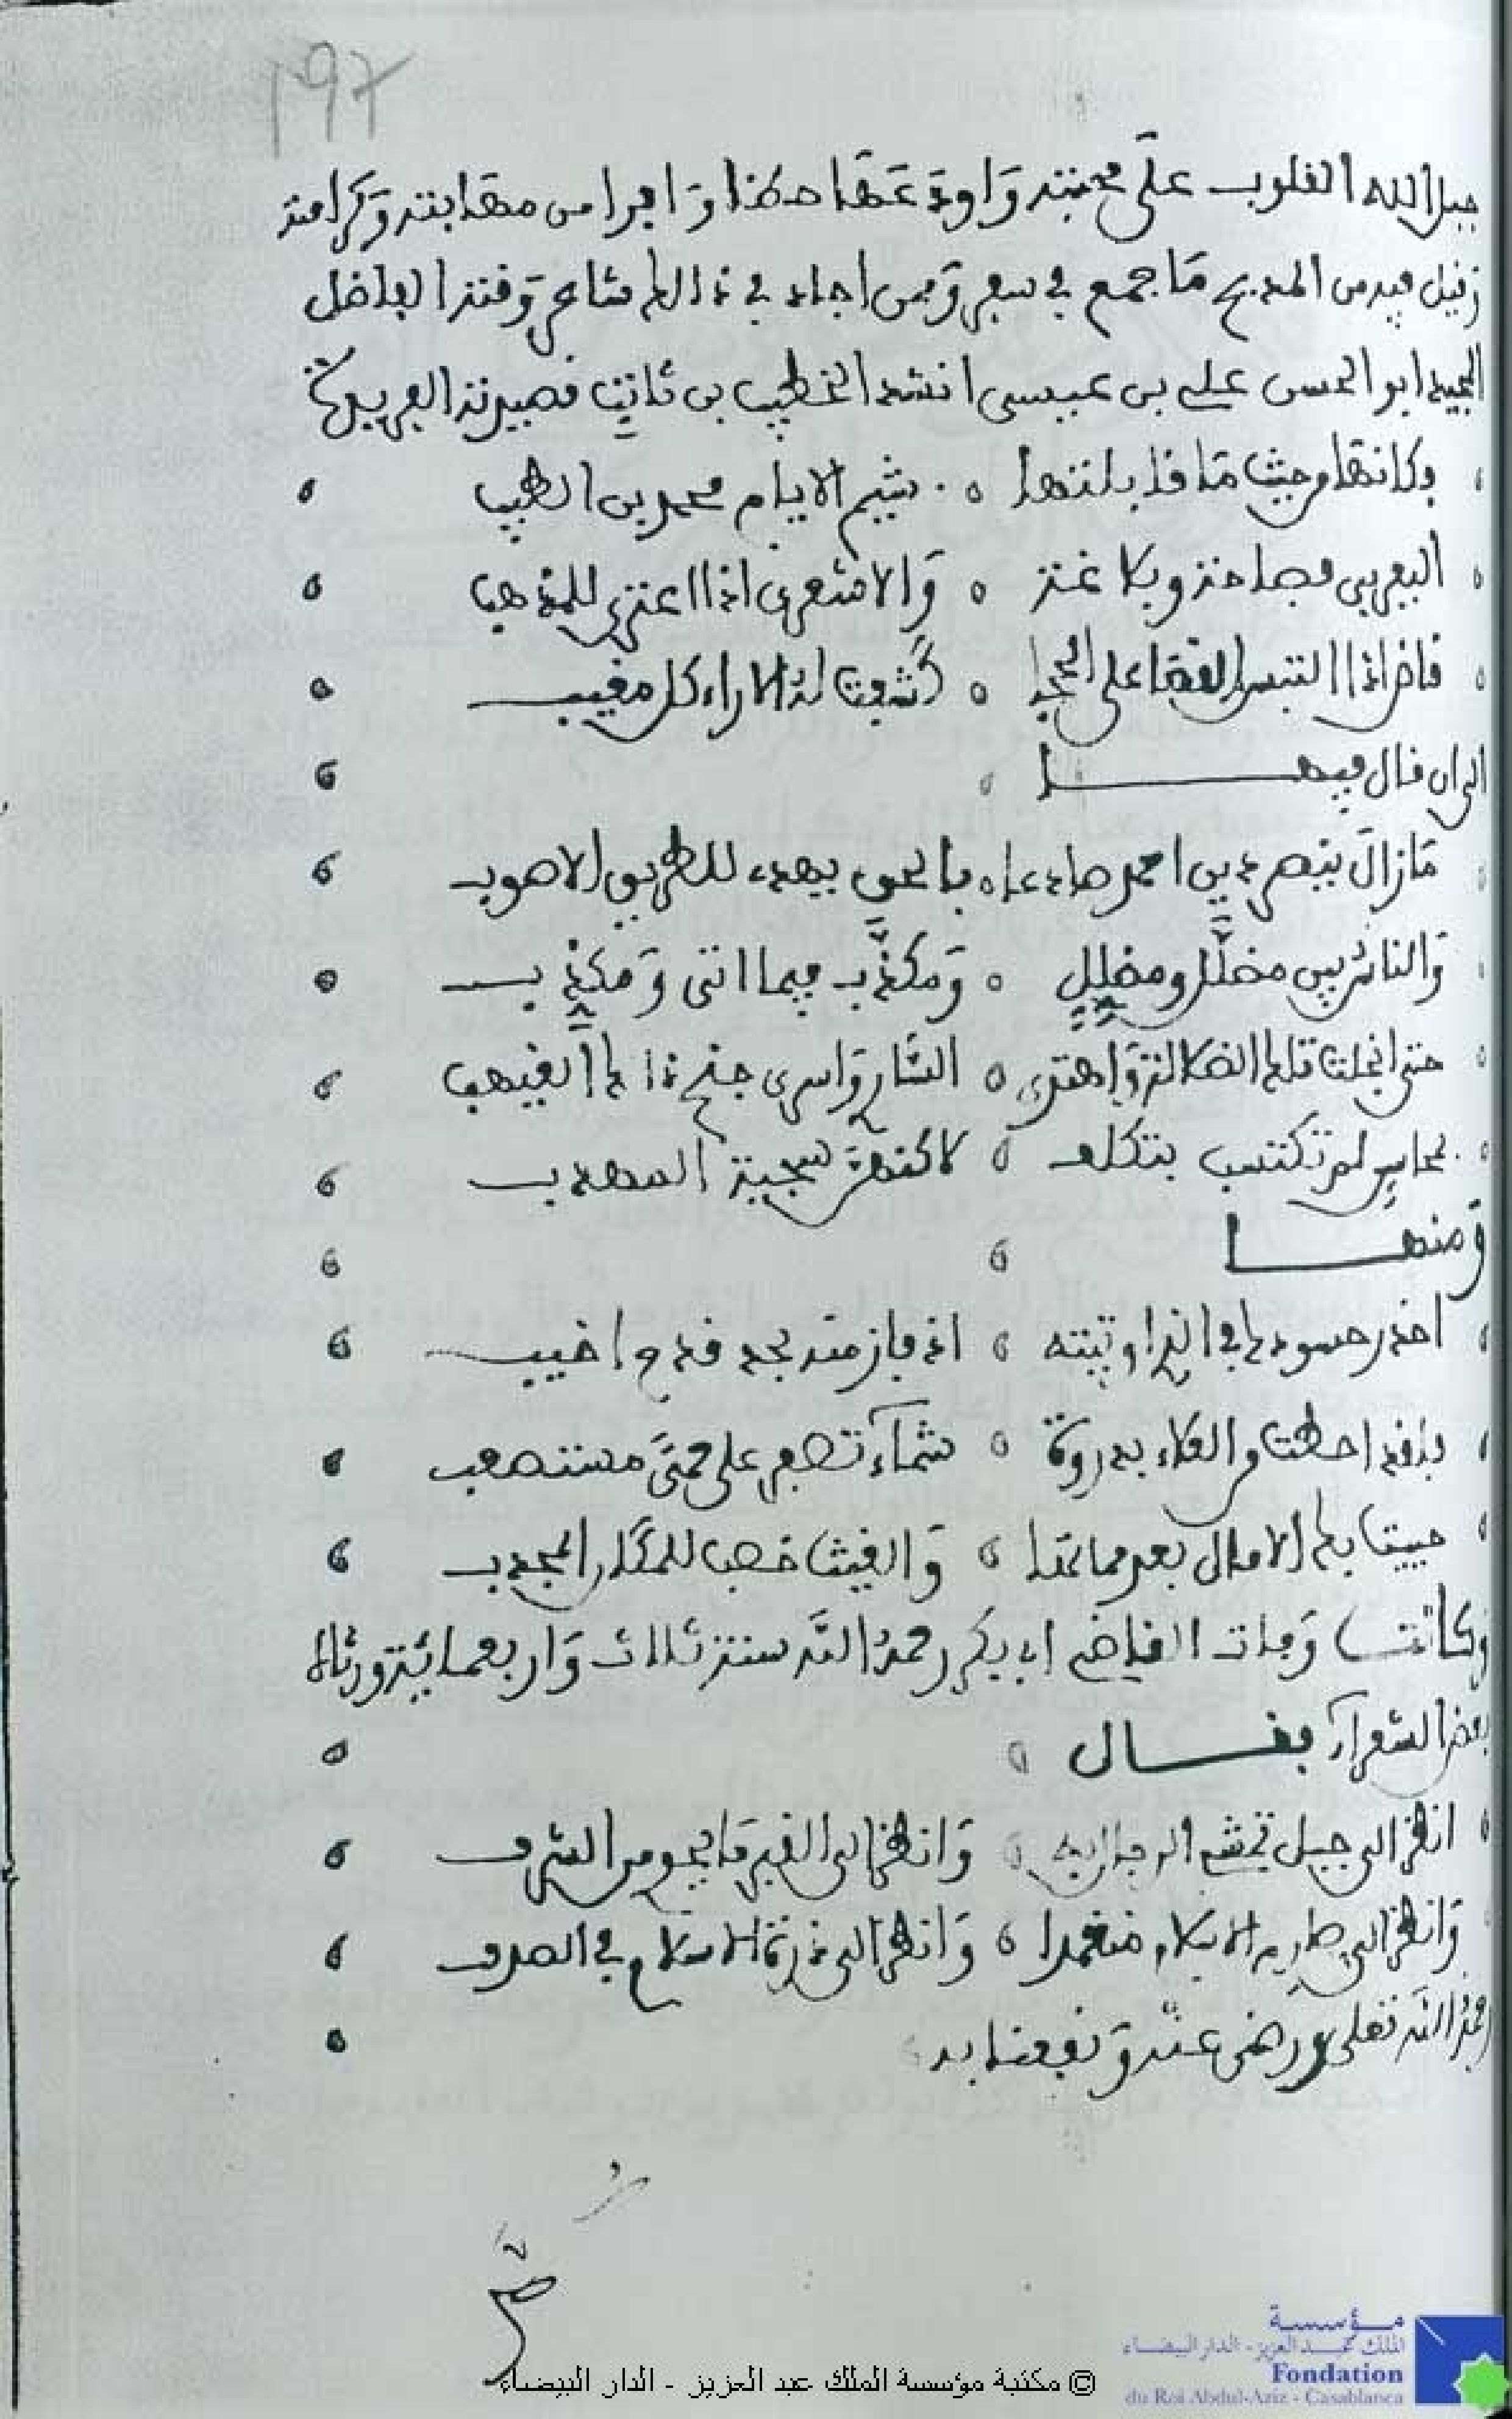 197
جبل الله القلوب على محبته واودعها حظا وافرا من مهابته وكرامته
وقيل فيه من المديح ما جمع في سفر وممن اجاد في ذالك شاعر وقته الفاضل
المجيد ابو الحسن علي بن عيسى انشد الخطيب بن ثابت قصيدته الفريدة
وكانها من حيث ما قابلتها شيم الامام محمد بن الطيب
اليعربي فصاحة وبلاغة والاشعري اذا اعتزى للمذهب
قاض اذا التبس القضا على الحجا كشفت له الاراء كل مغيب
الى ان قال فيها
ما زال ينصر دين احمد صادعا بالحق يهدي للطريق الاصوب
والناس بين مضلل ومضلل ومكذب فيما اتى ومكذب
حتى انجلت تلك الضلالة واهتدى السار واسرى جنح ذاك الغيهب
بمحاسن لم تكتسب بتكلف لاكنهن سجية المهذب
ومنها
اعذر حسودك في الذي اوتيته اذ فاز منه بجد قدح اخيب
فلقد احللت من العلاء بذروة شماء تصعب على حمى مستصعب
حييت بك الامال بعد مماتها والغيث خصب للمكان المجدب
وكانت وفات القاضي ابي بكر رحمه الله سنة ثلاث واربعمائة ورثاه
بعض الشعراء فقال
انظر الى جبل تمشي الرجال به وانظر الى القبر ما يحوي من الشرف
وانظر الى صارم الاسلام منغمدا وانظر الى درة الاسلام في الصدف
رحمه الله تعلى ورضي عنه ونفعنا به
مؤسسة
الملك عبد العزيز - الدار البيضاء
Fondation
du Roi Abdul-Aziz - Casablanca
© مكتبة مؤسسة الملك عبد العزيز - الدار البيضاء